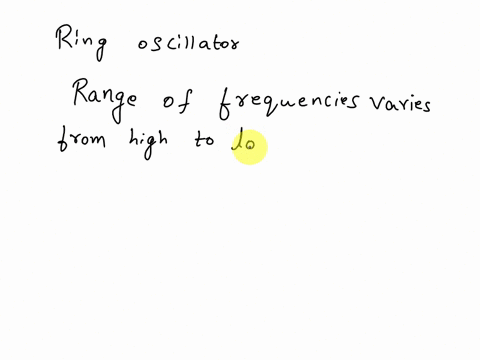 Ring oscillator
Range of frequencies varies
from high to lo